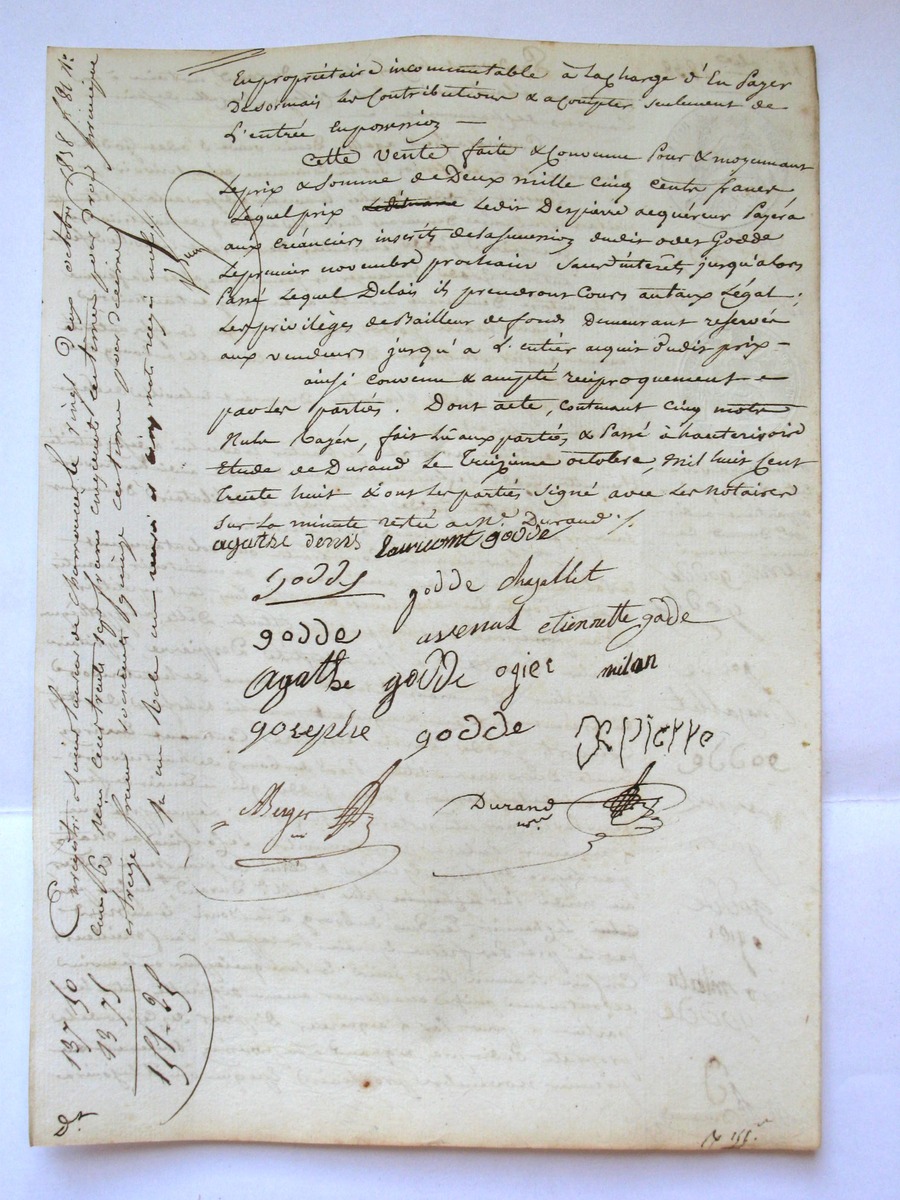 En propriétaire incommutable à la charge d'En Payer
Désormais les Contributions & a compter seulement de
L'entrée En possession —
Cette vente faite & Convenue Pour & moyennant
Le prix & Somme de Deux mille cinq cents francs
Lequel prix Ledit Despierre acquéreur Payera
aux créanciers inscrits de la succession dudit Godde
Le premier novembre prochain Sans intérêts jusqu'alors
Passé Lequel Delais ils prendront Cours au taux Légal ;
Les privilèges de Bailleur de fonds Demeurant réservés
aux vendeurs jusqu'a L'entier acquit dudit prix —
ainsi convenu & accepté réciproquement
par Les parties . Dont acte, contenant cinq mots
Nuls Rayés, fait Lu aux parties & Passé à hauterivoire
Etude de Durand Le Treizieme octobre, mil huit Cent
Trente huit & ont Les parties signé avec Les notaires
Sur La minute restée a Me. Durand ./.
agathe denis godde
godde godde chapallet
godde etiennette godde
agathe godde ogier milan
gosephe godde Despierre
Berger Durand
Enregistré à Saint Laurent de Chamousset le vingt Deux octobre 1838 f° 81 R°
cent trente sept francs cinquante centimes pour droit principal
et treize francs soixante quinze centimes pour décime
137 50
13 75
151 - 25